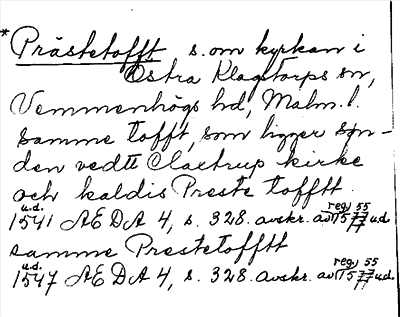 *Prästetofft s. om kyrkan i
Östra Klagstorps sn,
Vemmenhögs hd, Malm. l.
samme tofft, som ligger syn-
den vedtt Claxtrup kirke
och kaldis Preste tofftt.
u.d. reg. 55
1541 AEDA 4, s. 328. avskr. av 1577 u.d.
samme Prestetofftt
u.d. reg. 55
1547 AEDA 4, s. 328. avskr. av 1577 u.d.